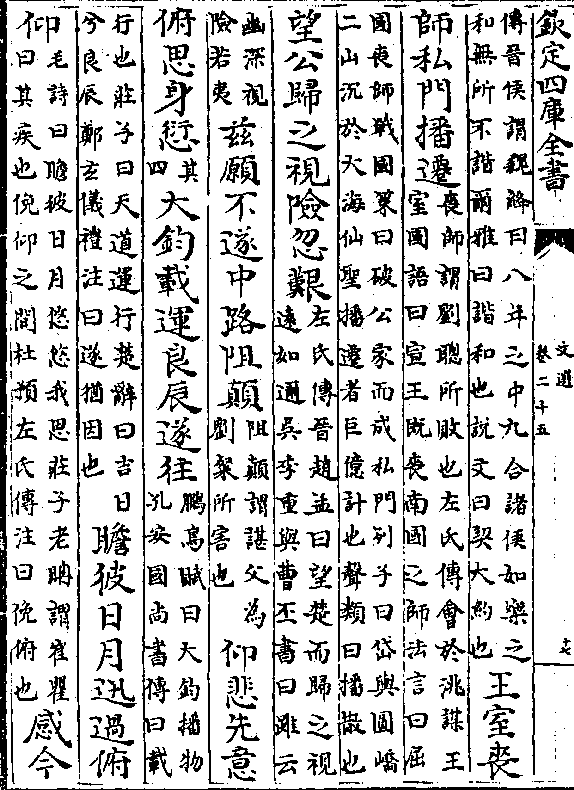 欽定四庫全書
文選
卷二十五
十七
傳晉侯謂魏絳曰八年之中九合諸侯如樂之
和無所不諧爾雅曰諧和也說文曰契大約也
王室喪
師私門播遷
喪師謂劉聰所敗也左氏傳會於洮謀王
室國語曰宣王既喪南國之師法言曰屈
國喪師戰國策曰破公家而成私門列子曰岱輿圓嶠
二山沉於大海仙聖播遷者巨億計也聲類曰播散也
望公歸之視險忽艱
左氏傳晉趙孟曰望楚而歸之視
遠如邇吳季重與曹丕書曰雖云
幽深視
險若夷
兹願不遂中路阻顛
阻顛謂諶父為
劉粲所害也
仰悲先意
俯思身愆
其
四
大鈞載運良辰遂往
鵩鳥賦曰大鈞播物
孔安國尚書傳曰載
行也莊子曰天道運行楚辭曰吉日
兮良辰鄭玄儀禮注曰遂猶因也
瞻彼日月迅過俯
仰
毛詩曰瞻彼日月悠悠我思莊子老聃謂崔瞿
曰其疾也俛仰之間杜預左氏傳注曰俛俯也
感今